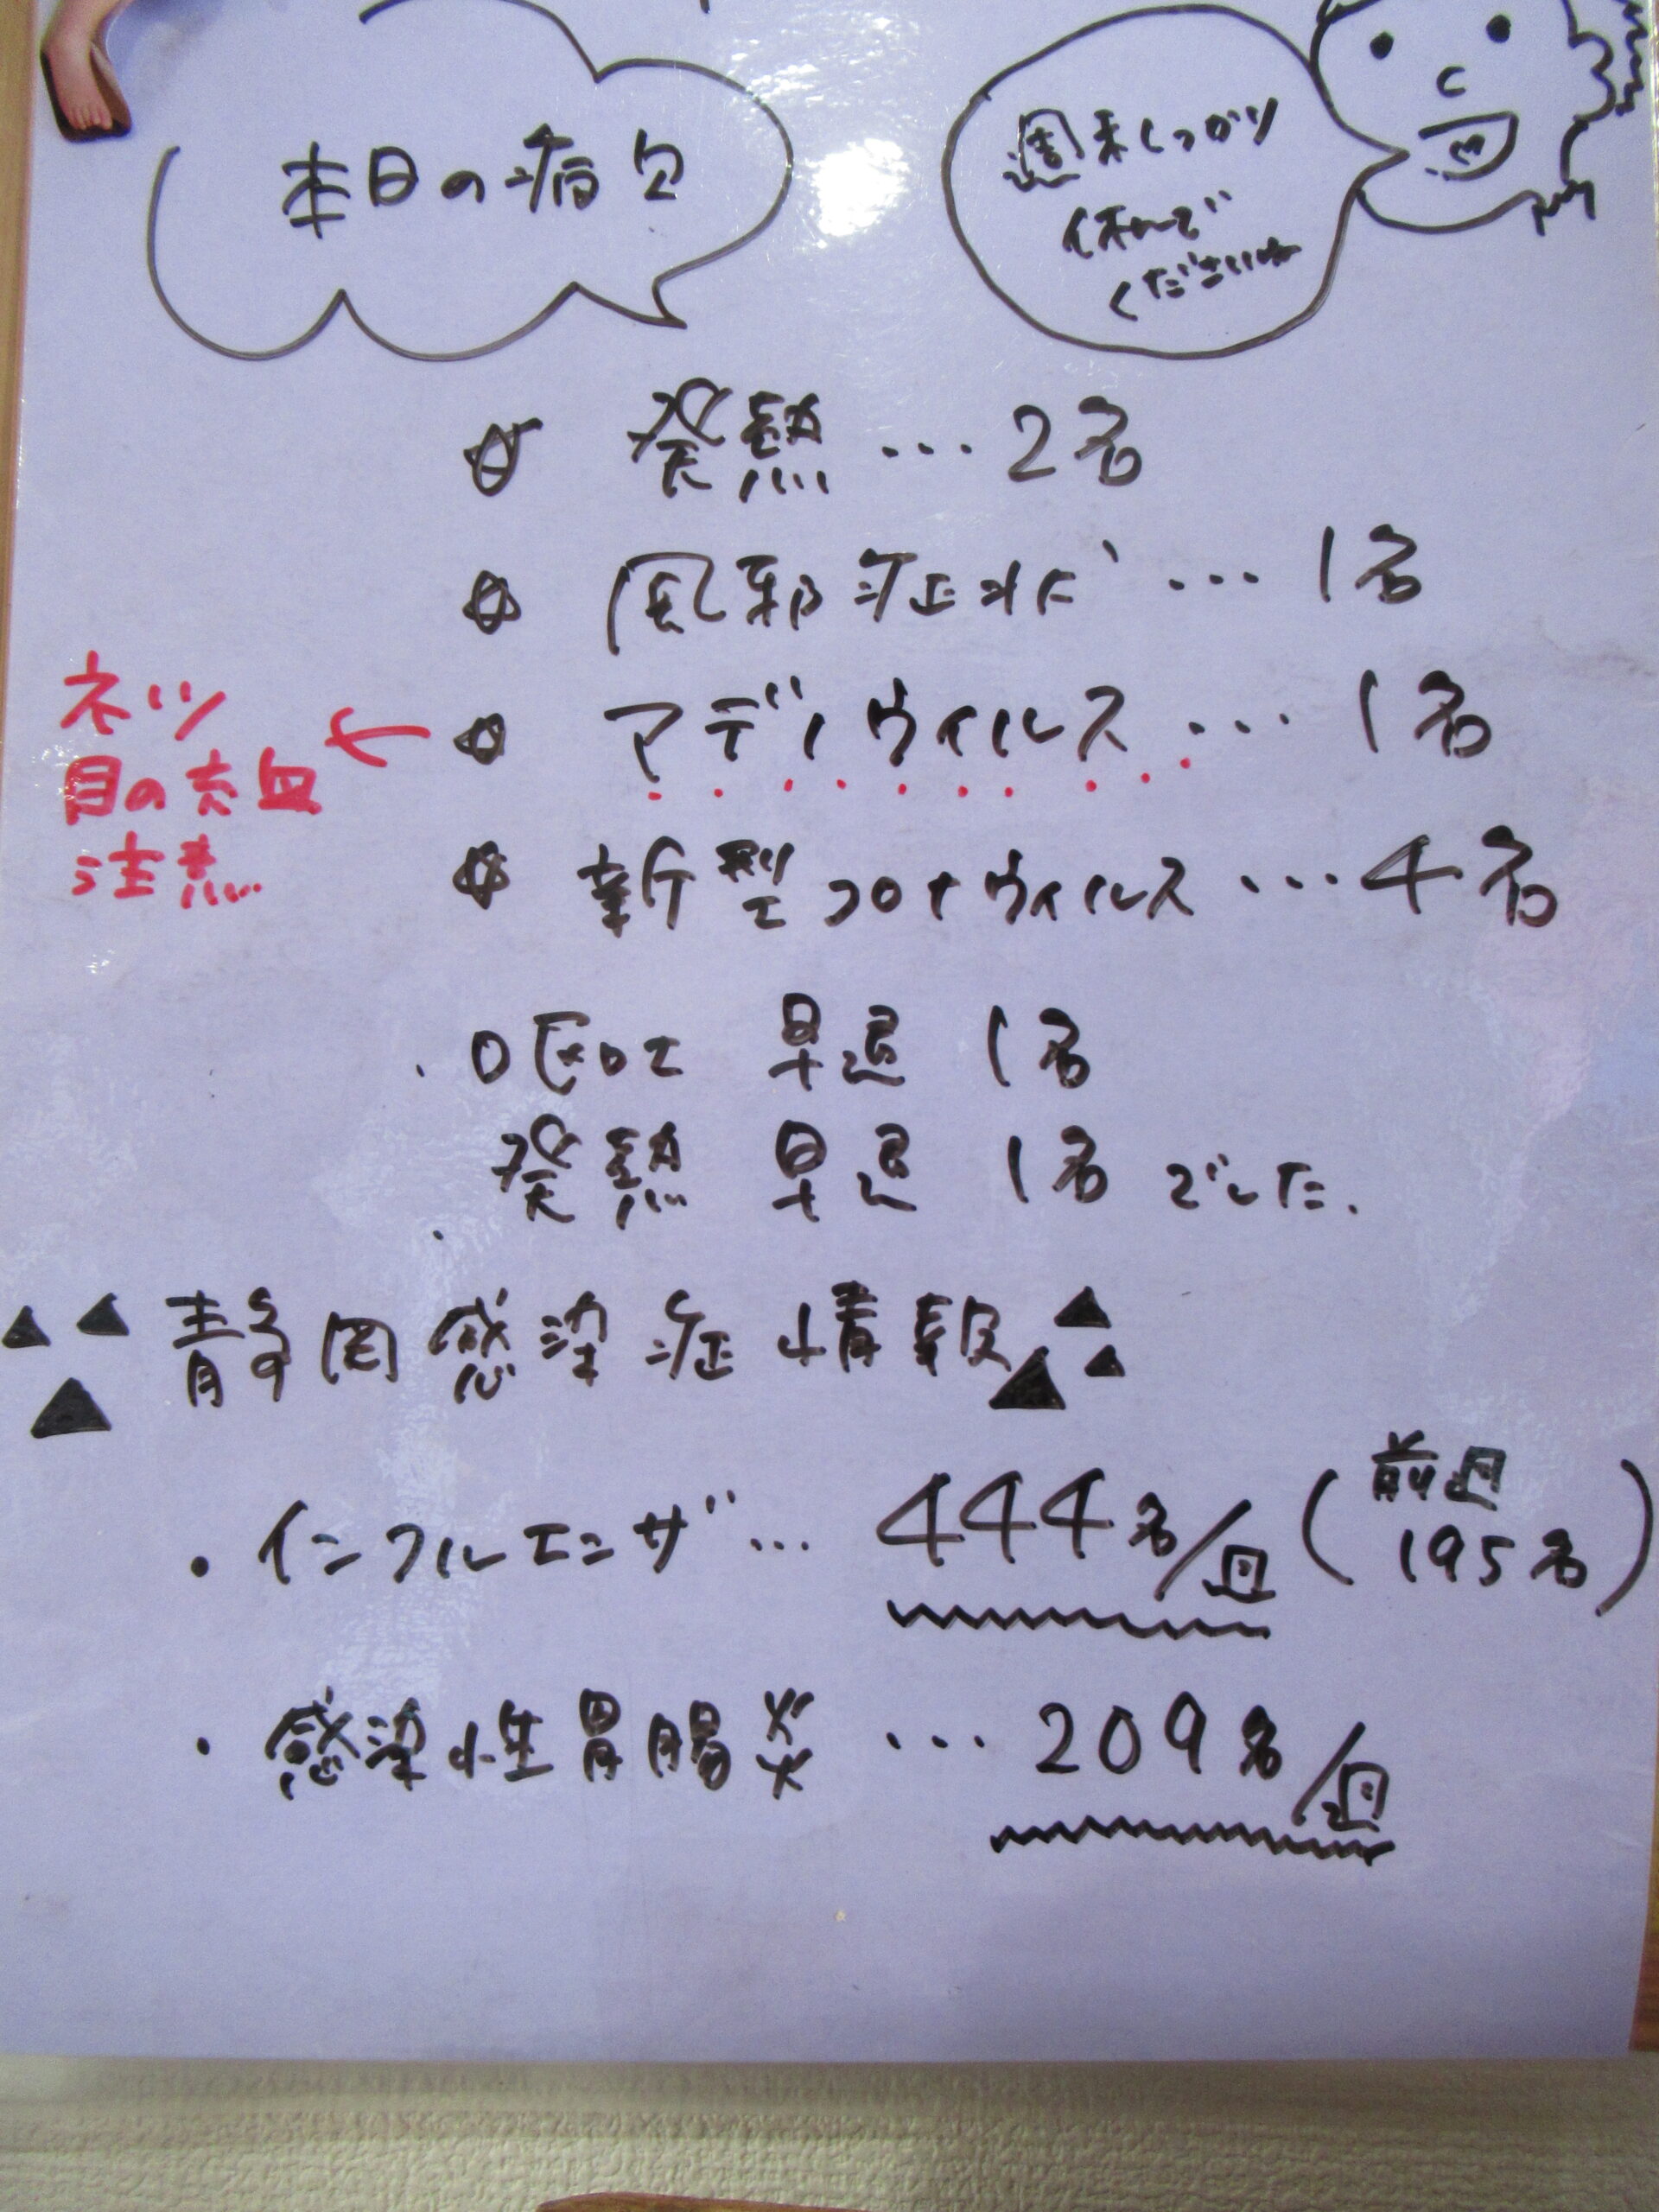 本日の病欠
週末しっかり
休んで
くださいね
☆ 発熱…2名
☆ 風邪症状…1名
☆ アデノウィルス…1名
ネツ
目の充血
注意
☆ 新型コロナウィルス…4名
・嘔吐 早退 1名
・発熱 早退 1名 でした.
▲▲▲静岡感染症情報▲▲▲
・インフルエンザ… 444名/週 (前週 195名)
・感染性胃腸炎 …209名/週